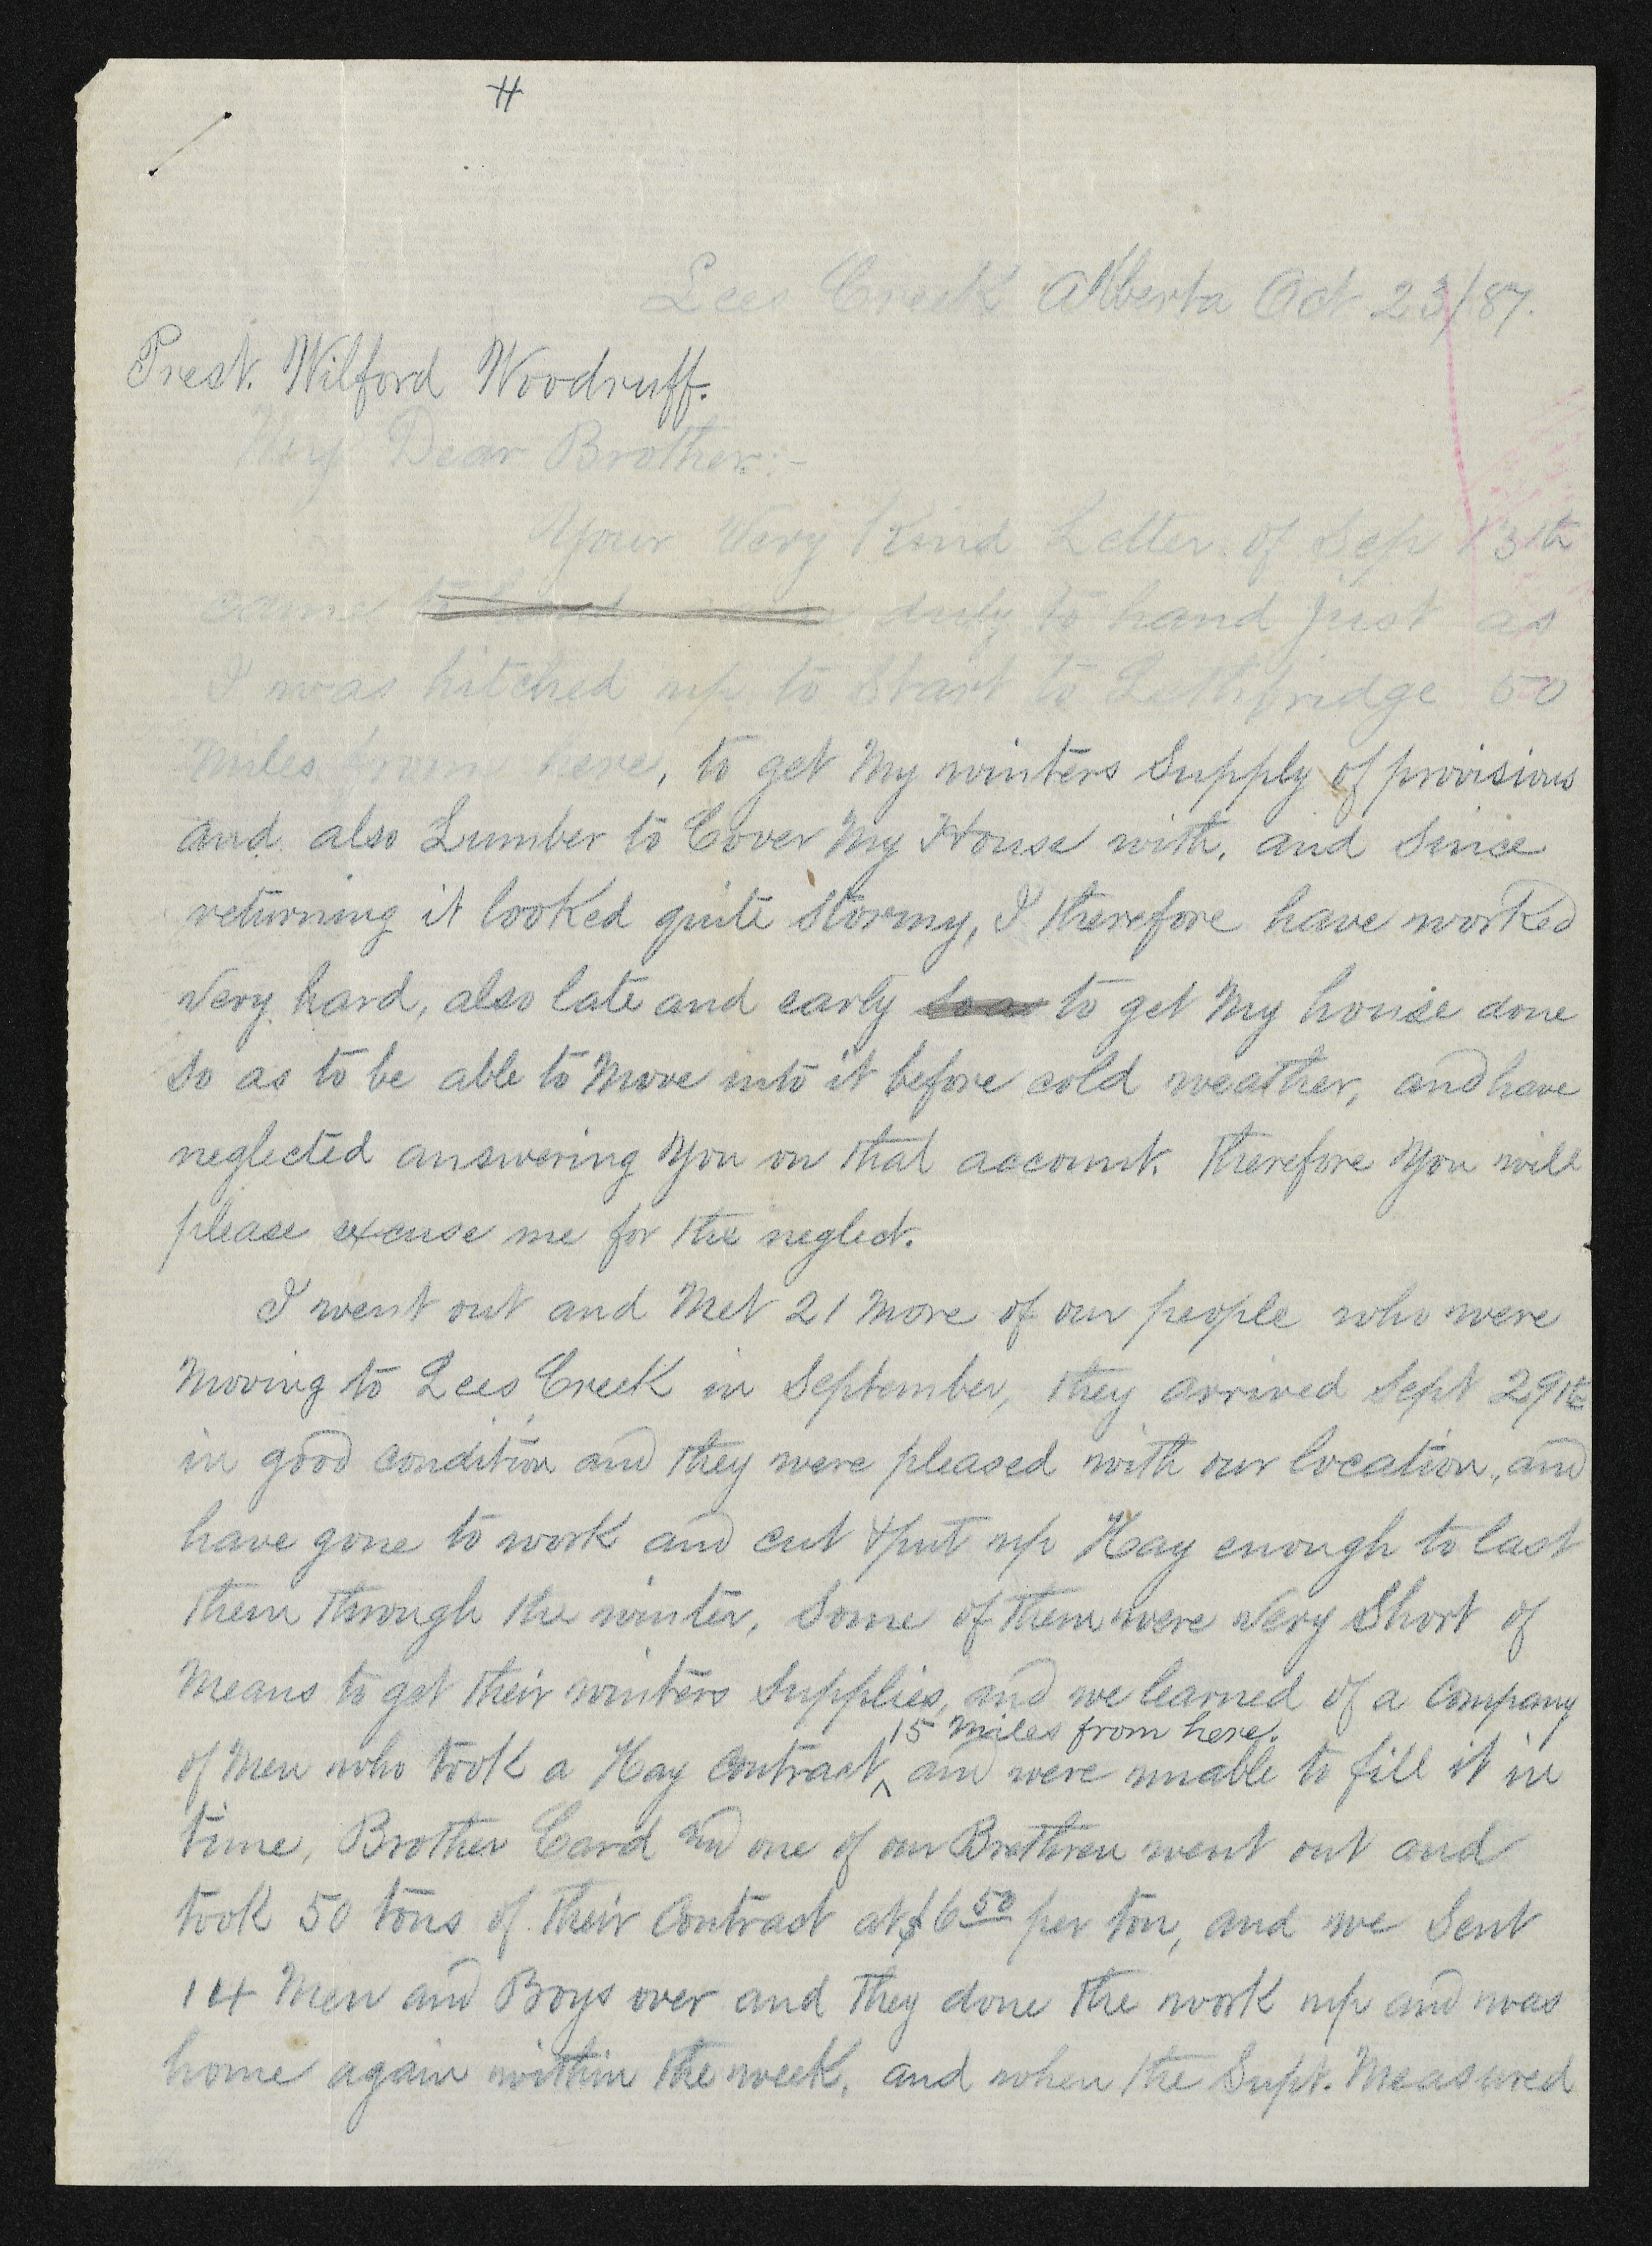 H
Lees Creek Alberta Oct 23/87.
Prest. Wilford Woodruff.
Very Dear Brother:-
Your Very Kind Letter of Sep 13th
came duly to hand just as
I was hitched up to Start to Lethbridge 50
Miles from here, to get My winters Supply of provisions
and also Lumber to Cover My House with, and Since
returning it looked quite Stormy, I therefore have worked
Very hard, also late and early so as to get My house done
So as to be able to Move into it before cold weather, and have
neglected answering You on that account. Therefore You will
please excuse me for the neglect.
I went out and Met 21 More of our people who were
Moving to Lees Creek in September, they arrived Sept 29th
in good condition and they were pleased with our location, and
have gone to work and cut & put up Hay enough to last
them through the winter, Some of them were Very Short of
Means to get their winters Supplies, and we learned of a Company
15 Miles from here.
of Men who took a Hay Contract ^ and were unable to fill it in
time, Brother Card and one of our Brethren went out and
took 50 tons of their Contract at $6 50 per ton, and we Sent
14 Men and Boys over and they done the work up and was
home again within the week, and when the Supt. Measured